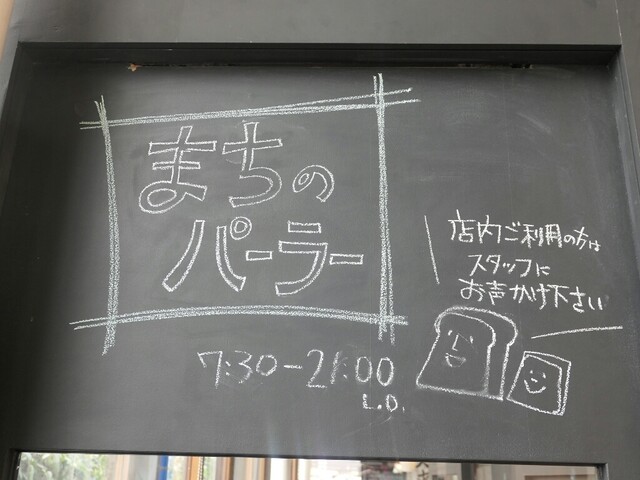 まちの
パーラー
7:30-21:00
L.O.
店内ご利用の方は
スタッフに
お声がけ下さい